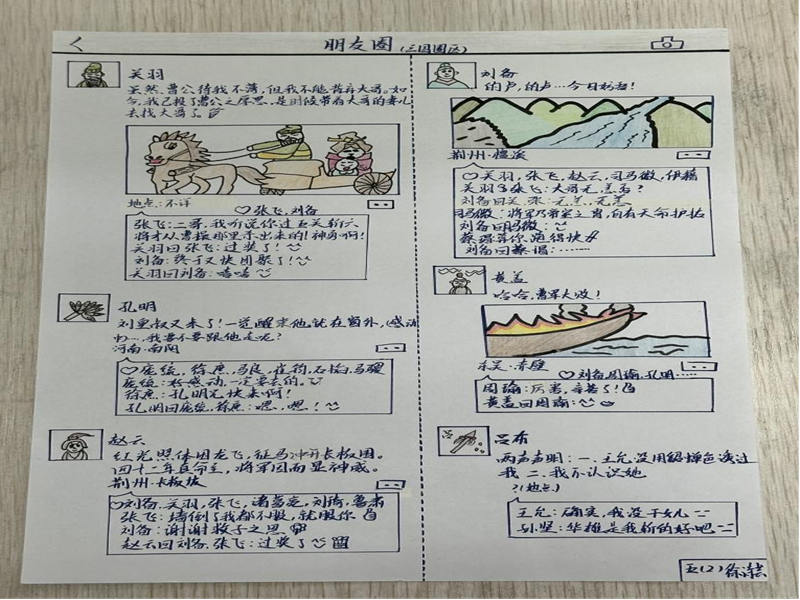 朋友圈(三国圈区)
关羽
虽然曹公待我不薄,但我不能背弃大哥。如
今,我已报了曹公之厚恩,是时候带着大哥的妻儿
去找大哥了。
地点:不详
张飞,刘备
张飞:二哥,我听说你过五关斩六
将才从曹操那里杀出来的!神勇啊!
关羽回张飞:过奖了!
刘备:终于又快团聚了!
关羽回刘备:嘻嘻
孔明
刘皇叔又来了!一觉醒来他就在窗外,(感动
ing)…,我要不要跟他走呢?
河南·南阳
庞统,徐庶,马良,崔钧,石韬,马谡
庞统:好感动,一定要去的。
徐庶:孔明兄快来啊!
孔明回庞统,徐庶:嗯,嗯!
赵云
红光照体困龙飞,征马冲开长坂围。
四十二年真命主,将军因而显神威。
荆州·长坂坡
刘备,关羽,张飞,诸葛亮,刘琦,鲁肃
张飞:墙倒了我都不服,就服你
刘备:谢谢救子之恩
赵云回刘备,张飞:过奖了
刘备
的卢,的卢…今日妨吾!
荆州·檀溪
关羽,张飞,赵云,司马徽,伊籍
关羽 张飞:大哥无恙否?
刘备回关,张:无恙,无恙
司马徽:将军乃帝室之胄,自有天命护佑
刘备回司马徽:
蔡瑁:算你跑得快
刘备回蔡瑁:……
黄盖
哈哈,曹军大败!
东吴·赤壁
刘备,周瑜,孔明……
周瑜:厉害,辛苦了!
黄盖回周瑜:
吕布
两点声明:一.王允没用貂蝉色诱过
我 二.我不认识她
?(地点)
王允:确实,我没干女儿
孙坚:华雄是我斩的好吧
五(2)